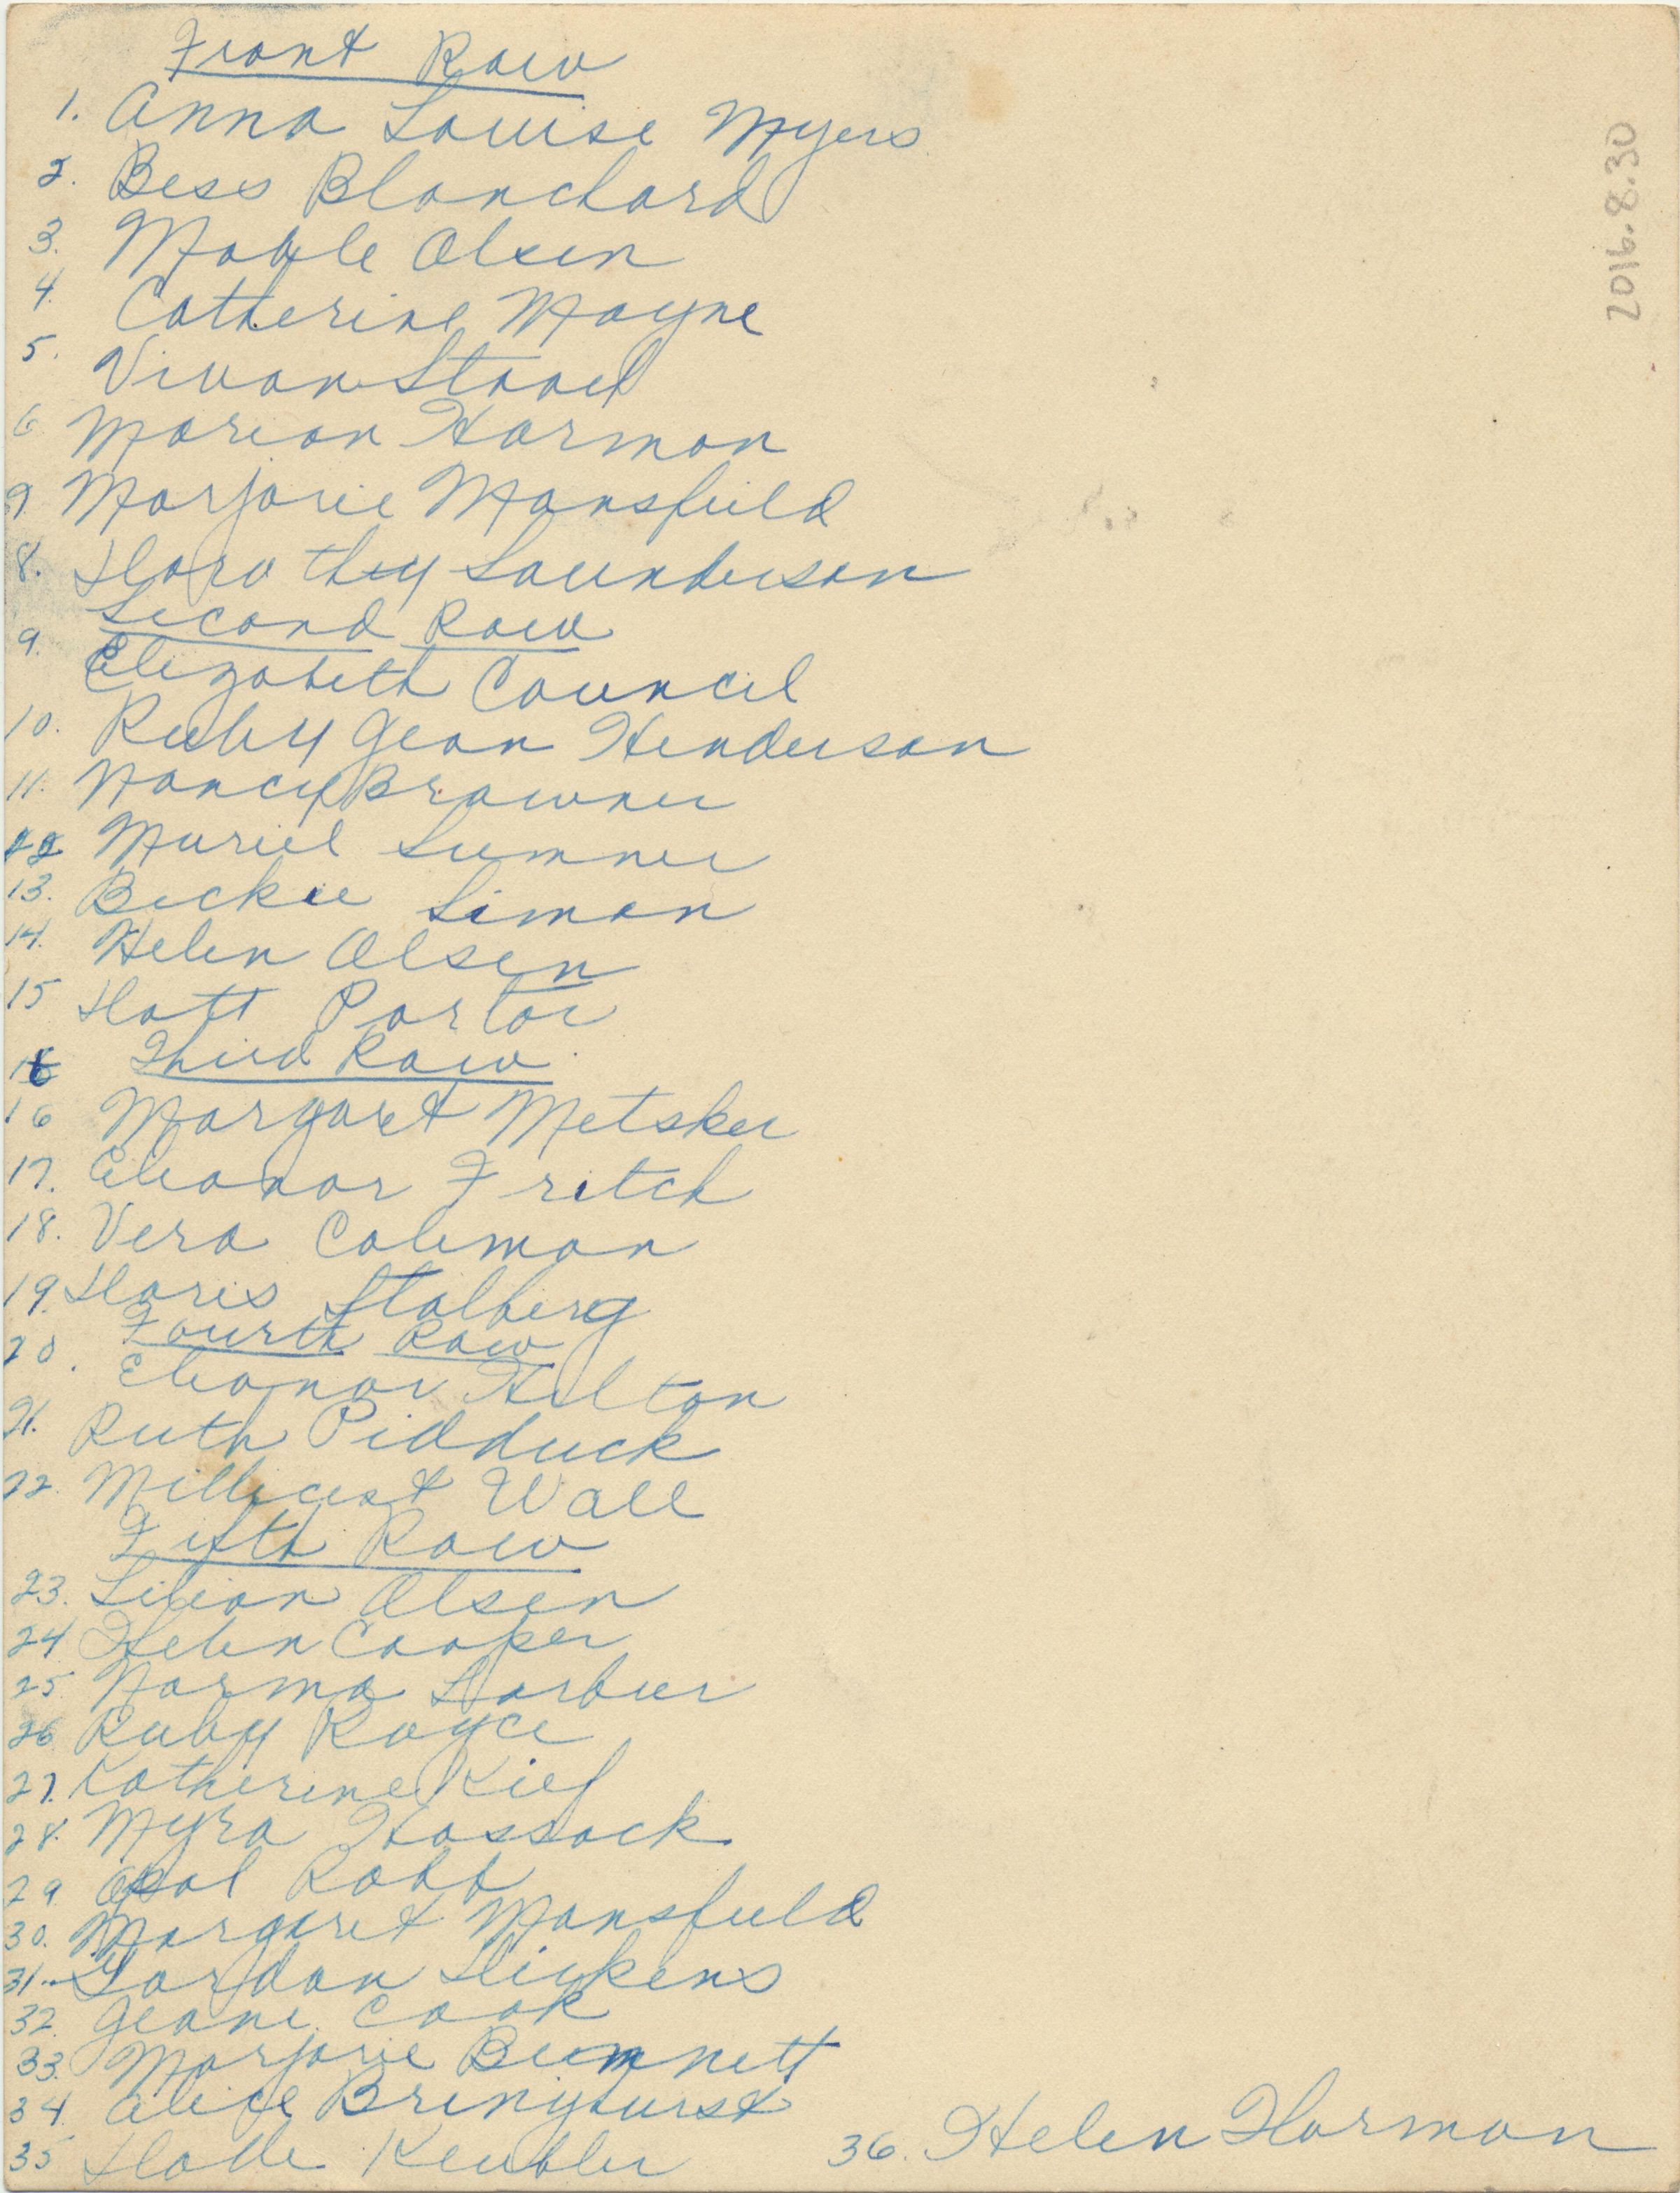 Front Row
1. Anna Louise Myers
2. Bess Blanchard
3. Mable Olsen
4. Catherine Mayne
5. Vivan Stood
6 Marion Harmon
7 Marjorie Mansfield
8. Dorothy Saunderson
Second Row
9. Elizabeth Council
10. Ruby Jean Henderson
11. Nancy Browner
12 Muriel Sumner
13. Beckie Simon
14. Helen Olsen
15 Dott Portor
Third Row
16 Margaret Metsker
17. Eleanor Fritch
18. Vera Coleman
19. Doris Stalberg
Fourth Row
20. Eleanor Hilton
21. Ruth Pidduck
22. Millicent Wall
Fifth Row
23. Lilian Olsen
24 Helen Cooper
25 Norma
26 Ruby Royce
27. Katherine Kief
28. Myra Hassack
29 Opal Robb
30. Margaret Mansfield
31. Gordon Dickens
32. Jeane Cook
33. Marjorie Bumnett
34. Alice Bringhurst
35 Keubler
36. Helen Harmon
2016.8.30